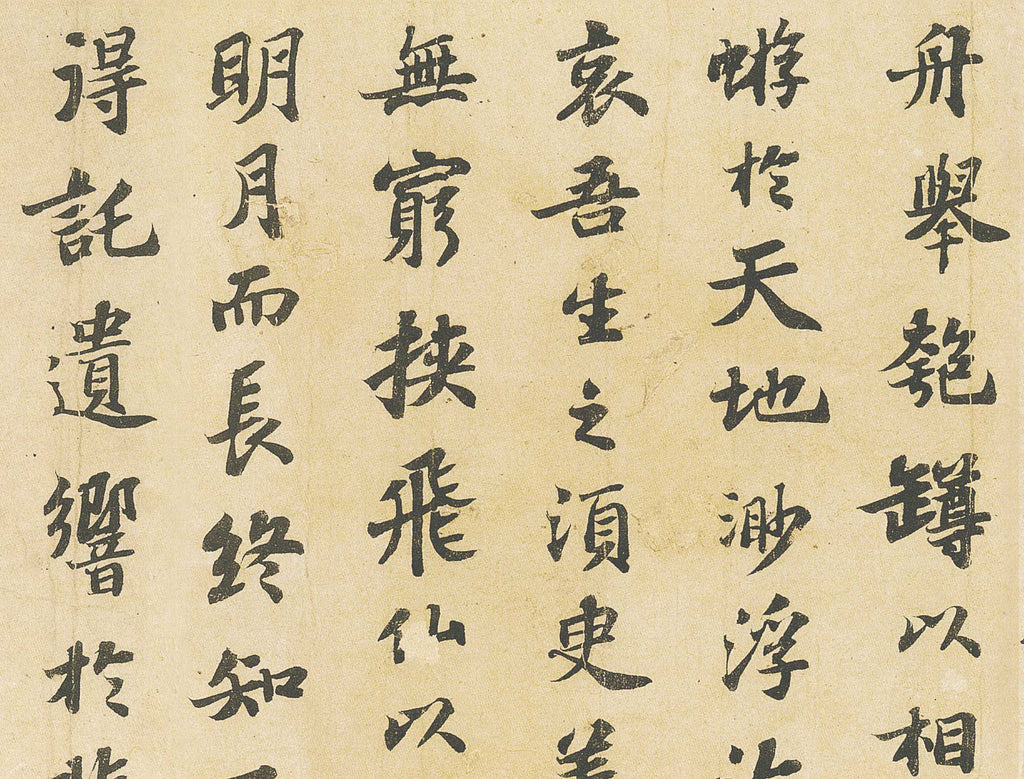 舟舉匏罇以相
蝣於天地渺浮
哀吾生之須臾
無窮挾飛仙以
明月而長終知
得託遺響於